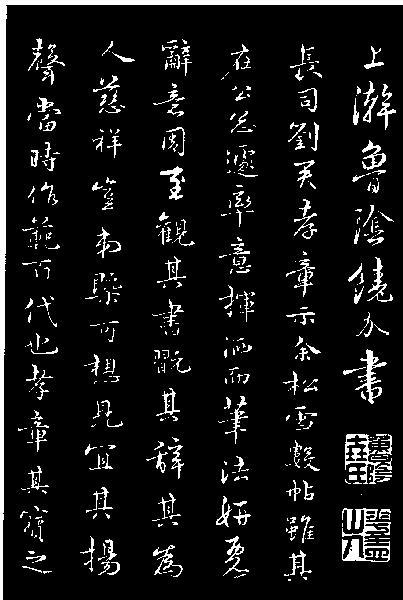 上澣魯陰饒介書
長司劉君孝章示余松雪數帖雖其
在公怱遽率意揮洒而筆法妍
辭意周至觀其書翫其辭其為
人慈祥豈弟槩可想見宜其揚
聲當時作範百代也孝章其寶之